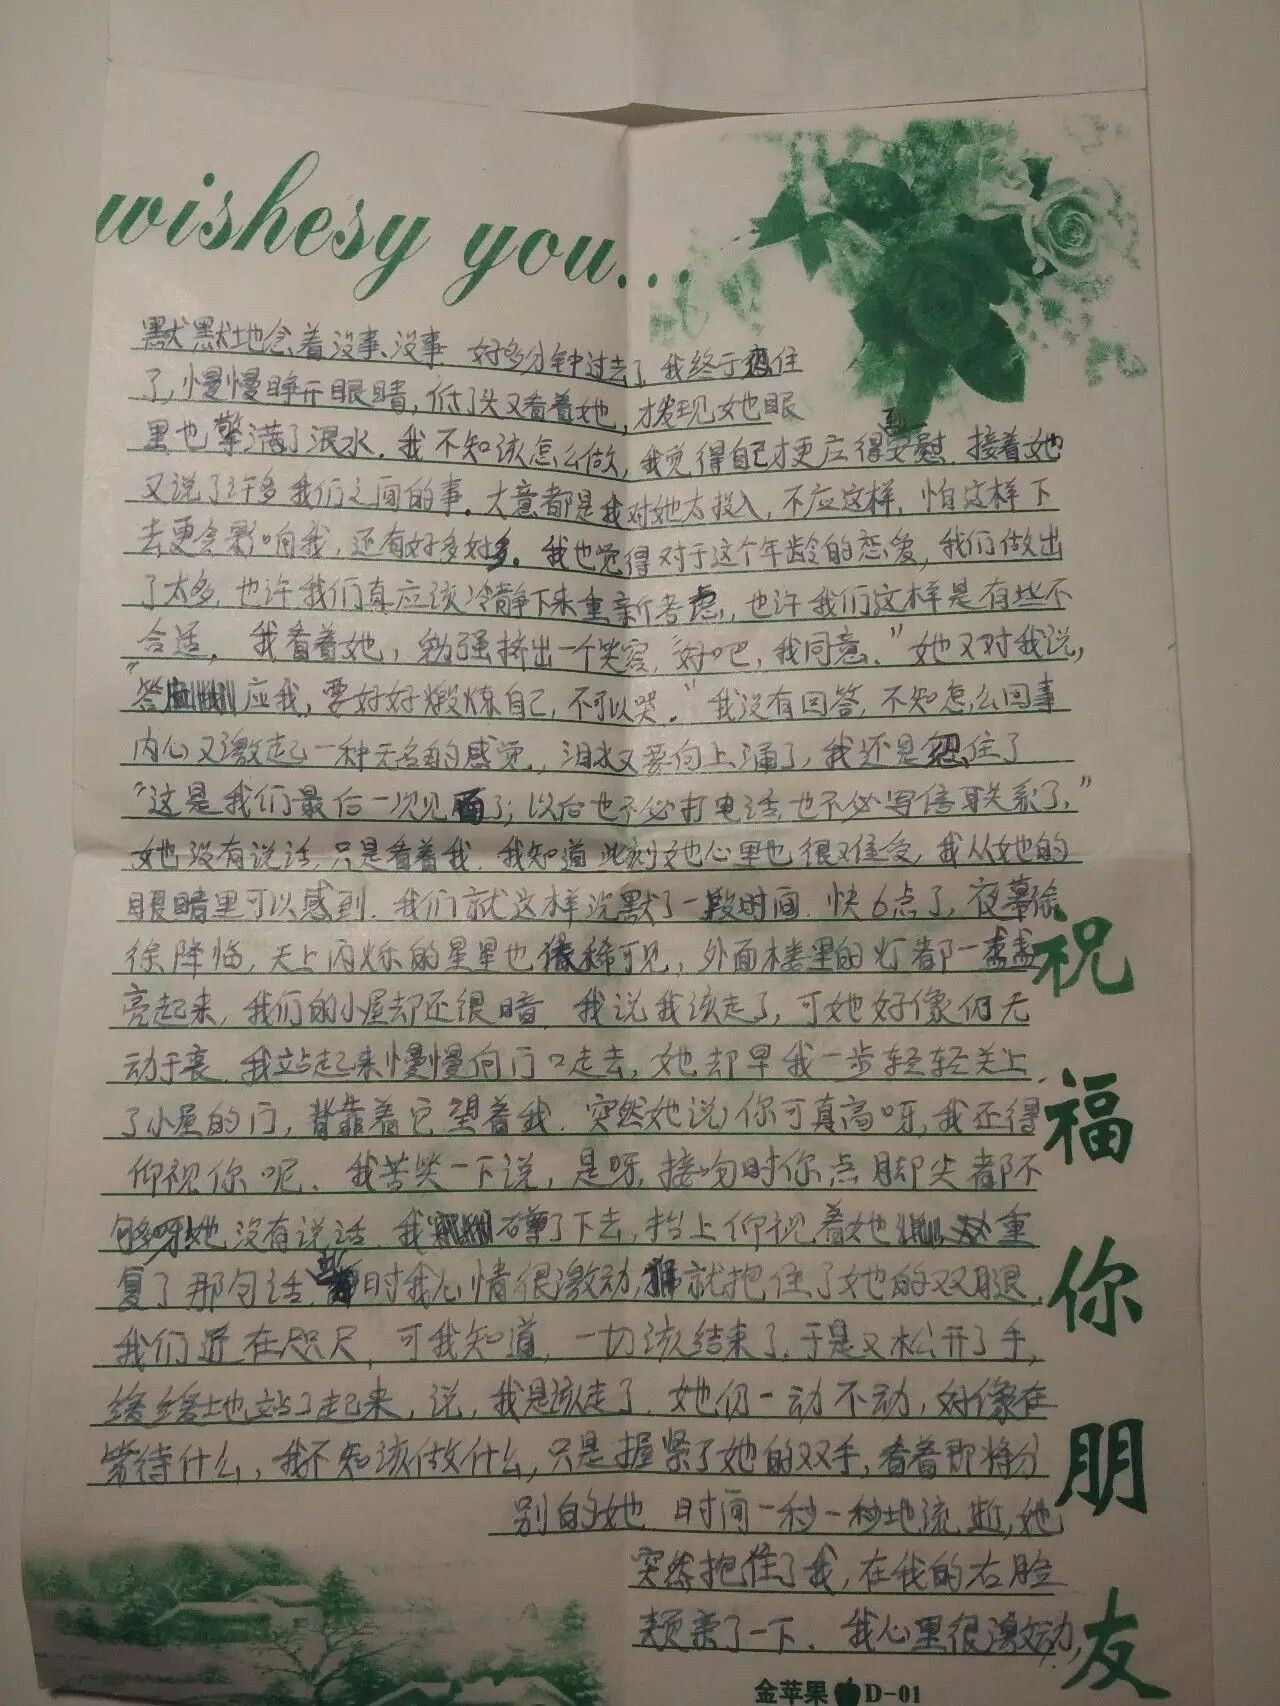 wishesy you...
默默地念着没事、没事 好多分钟过去了 我终于忍住
了,慢慢睁开眼睛,低了头又看着她,才发现她眼
里也擎满了泪水。我不知该怎么做,我觉得自己才更应得安慰 接着她
又说了许多我们之间的事。大意都是我对她太投入,不应这样,怕这样下
去更会影响我,还有好多好多。我也觉得对于这个年龄的恋爱,我们做出
了太多,也许我们真应该冷静下来重新考虑,也许我们这样是有些不
合适。我看着她,勉强挤出一个笑容,“好吧,我同意。”她又对我说,
“答应我,要好好煅炼自己,不可以哭。”我没有回答,不知怎么回事
内心又激起一种无名的感觉,泪水又要向上涌了,我还是忍住了
“这是我们最后一次见面了;以后也不必打电话,也不必写信联系了。”
她没有说话,只是看着我。我知道此刻她心里也很难受,我从她的
眼睛里可以感到。我们就这样沉默了一段时间。快6点了,夜幕徐
徐降临,天上闪烁的星星也依稀可见,外面楼里的灯都一盏盏
亮起来,我们的小屋却还很暗。我说我该走了,可她好像仍无
动于衷。我站起来慢慢向门口走去,她却早我一步轻轻关上
了小屋的门,背靠着它望着我。突然她说,你可真高呀,我还得
仰视你呢。我苦笑一下说,是呀,接吻时你点脚尖都不
够呀,她没有说话。我蹲了下去,抬上仰视着她重
复了那句话,此时我心情很激动,就抱住了她的双腿,
我们近在咫尺,可我知道,一切该结束了,于是又松开了手,
缓缓地站了起来,说,我是该走了。她仍一动不动,好像在
等待什么,我不知该做什么,只是握紧了她的双手,看着即将分
别的她 时间一秒一秒地流逝,她
突然抱住了我,在我的右脸
颊亲了一下。我心里很激动,
祝福你朋友
金苹果 D-01